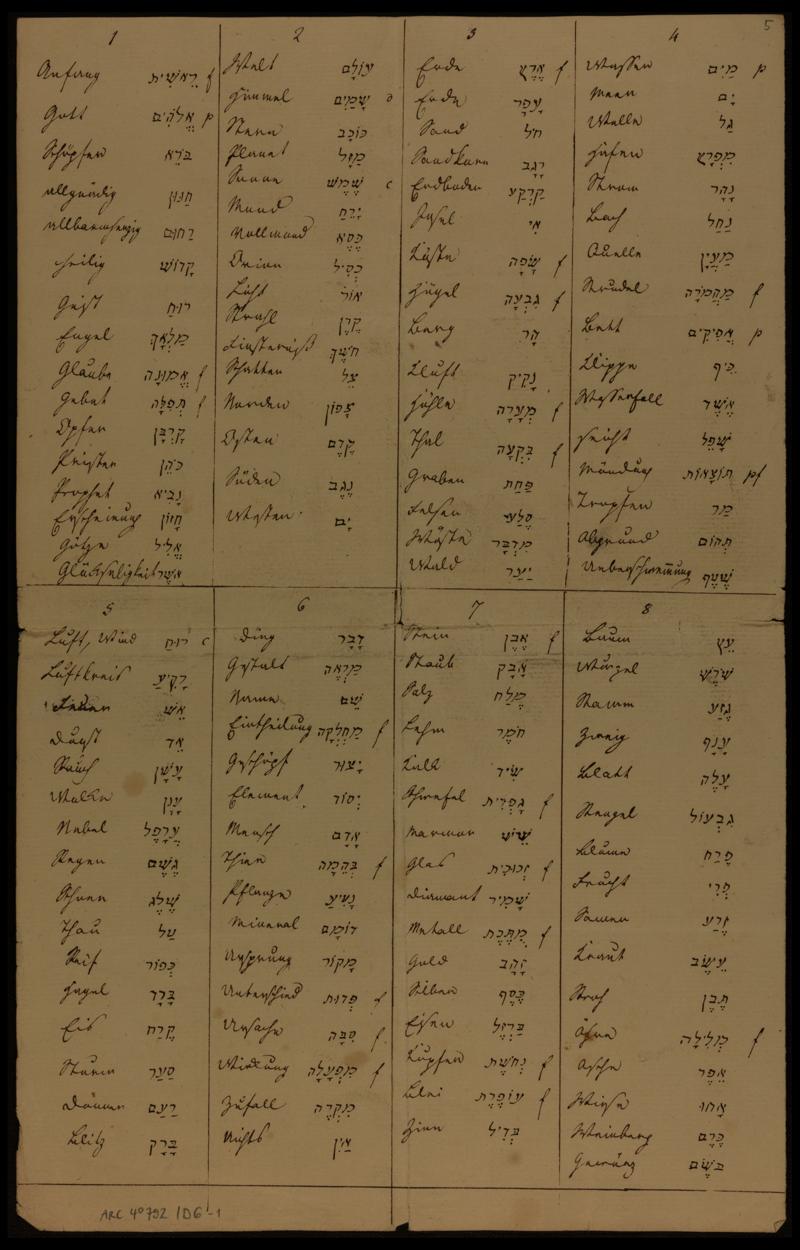 5
1
Anfang רֵאשִׁית f
Gott אֱלֹהִים p
Schöpfer בּוֹרֵא
Allgnädig חַנּוּן
Allbarmherzig רַחוּם
Heilig קָדוֹשׁ
Geist רוּחַ
Engel מַלְאָךְ
Glaube אֱמוּנָה f
Gebet תְּפִלָּה f
Opfer קָרְבָּן
Priester כֹּהֵן
Prophet נָבִיא
Erscheinung חָזוֹן
Götze אֱלִיל
Glückseligkeit אֹשֶׁר
2
Welt עוֹלָם
Himmel שָׁמַיִם
Stern כּוֹכָב
Planet מַזָּל
Sonne שֶׁמֶשׁ c
Mond יָרֵחַ
Vollmond כֶּסֶא
Orion כְּסִיל
Licht אוֹר
Strahl קֶרֶן
Finsterniß חֹשֶׁךְ
Schatten צֵל
Norden צָפוֹן
Osten קֶדֶם
Süden נֶגֶב
Westen יָם
3
Erde אֶרֶץ f
Erde עָפָר
Sand חֹל
Sandkorn רֶגֶב
Erdboden קַרְקַע
Insel אִי
Küste שָׂפָה f
Hügel גִּבְעָה f
Berg הָר
Kluft נָקִיק
Höhle מְעָרָה f
Thal בִּקְעָה f
Graben פַּחַת
Felsen סֶלַע
Wüste מִדְבָּר
Wald יַעַר
4
Wasser מַיִם p
Meer יָם
Welle גַּל
Hafen מִפְרָץ
Strom נָהָר
Bach נַחַל
Quelle מַעְיָן
Strudel מַהֲמוֹרָה f
Bett אֲפִיקִים p
Klippe כֵּיף
Wasserfall אֶשֶׁד
seicht שָׁפֵל
Mündung תּוֹצָאוֹת pf
Tropfen מַר
Abgrund תְּהוֹם
Ueberschwemmung שֶׁטֶף
5
Luft, Wind רוּחַ c
Luftkreis רָקִיעַ
Feuer אֵשׁ
Dunst אֵד
Rauch עָשָׁן
Wolke עָנָן
Nebel עֲרָפֶל
Regen גֶּשֶׁם
Schnee שֶׁלֶג
Thau טַל
Reif כְּפוֹר
Hagel בָּרָד
Eis קֶרַח
Sturm סַעַר
Donner רַעַם
Blitz בָּרָק
6
Ding דָּבָר
Gestalt מַרְאֶה
Name שֵׁם
Eintheilung מַחְלָקָה f
Geschöpf יָצוּר
Element יְסוֹד
Mensch אָדָם
Thier בְּהֵמָה f
Pflanze נָטִיעַ
Mineral דּוֹמֵם
Ursprung מָקוֹר
Unterschied פְּדוּת f
Ursache סִבָּה f
Wirkung מִפְעָלָה f
Zufall מִקְרֶה
Nichts אַיִן
7
Stein אֶבֶן f
Staub אָבָק
Salz מֶלַח
Lehm חֹמֶר
Kalk שִׂיד
Schwefel גָּפְרִית f
Marmor שַׁיִשׁ
Glas זְכוּכִית f
Diamant שָׁמִיר
Metall מַתֶּכֶת f
Gold זָהָב
Silber כֶּסֶף
Eisen בַּרְזֶל
Kupfer נְחֹשֶׁת f
Blei עוֹפֶרֶת f
Zinn בְּדִיל
8
Baum עֵץ
Wurzel שֹׁרֶשׁ
Stamm גֶּזַע
Zweig עָנָף
Blatt עָלֶה
Stengel גִּבְעוֹל
Blume פֶּרַח
Frucht פְּרִי
Samen זֶרַע
Kraut עֵשֶׂב
Stroh תֶּבֶן
מְלִילָה f
Asche אֵפֶר
Wiese אָחוּ
Weinberg כֶּרֶם
Gewürz בֹּשֶׂם
ARC 4° 792 / D6-1